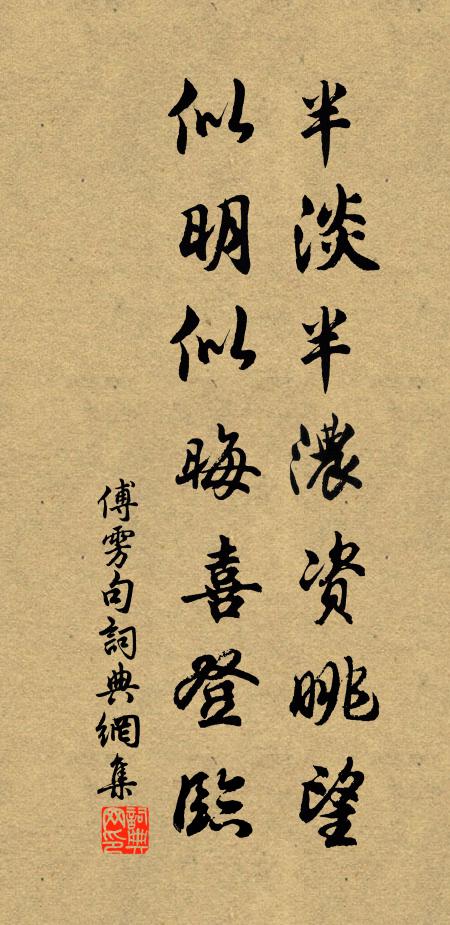 半淡半濃資眺望
似明似晦喜登臨
傅雱句詞典網集
詞典网印